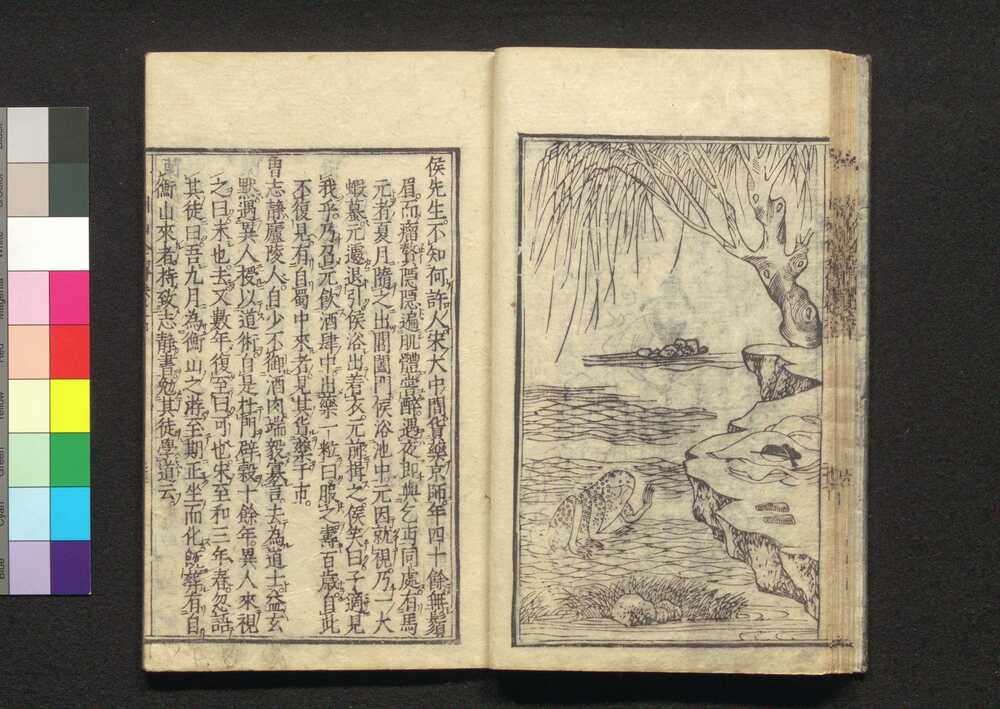 侯先生不知何許人宋大中間貨藥京師年四十餘無鬚
眉而瘤贅隱隱遍肌體嘗醉遇夜即與乞丐同處有馬
元者夏月隨之出閶闔門侯浴池中元因就視乃一大
蝦蟇元遽退引侯浴出着衣元前揖之侯笑曰子適見
我乎乃召元飲酒肆中出藥一粒曰服之壽百歲自此
不復見有自蜀中來者見其貨藥于市。
曹志靜廬陵人自少不御酒肉端毅寡言去為道士益玄
默遇異人授以道術自是杜門辟穀十餘年異人來視
之曰未也去又數年復至曰可也宋至和三年春忽語
其徒曰吾九月為衡山之游至期正坐而化師葬有自
衡山來者持致志靜書勉其徒學道云
Black
White
Magenta
Red
Yellow
Green
Cyan
Blue